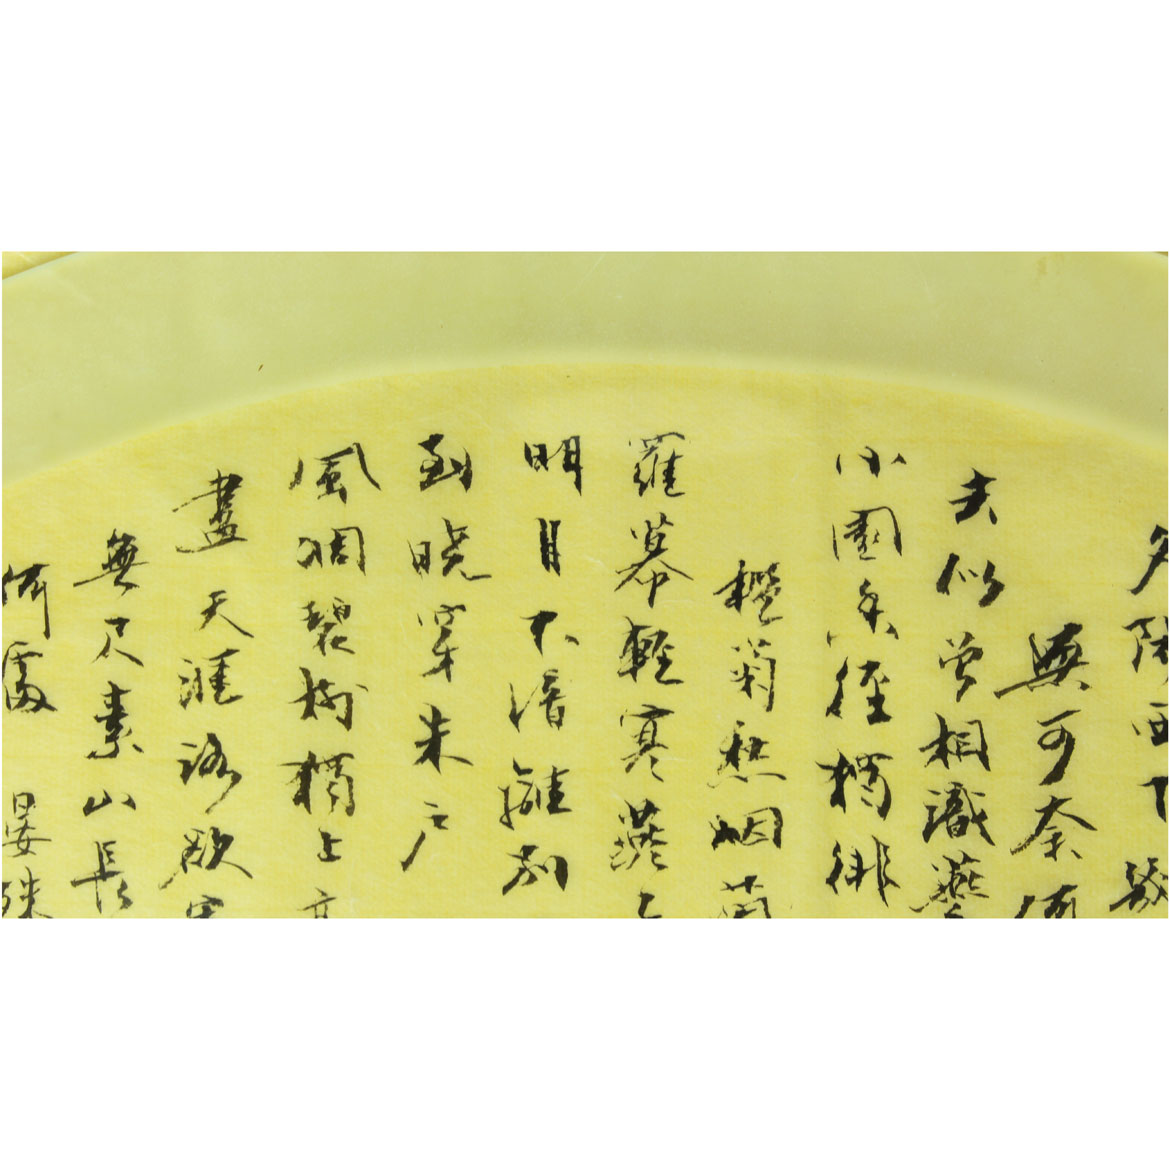 夕陽西下幾
無可奈何
去似曾相識燕
小園香徑獨徘
檻菊愁烟蘭
羅幕輕寒燕
明月不諳離別
到曉穿朱户
風凋碧樹獨上
盡天涯路欲
無尺素山長
何處 晏殊